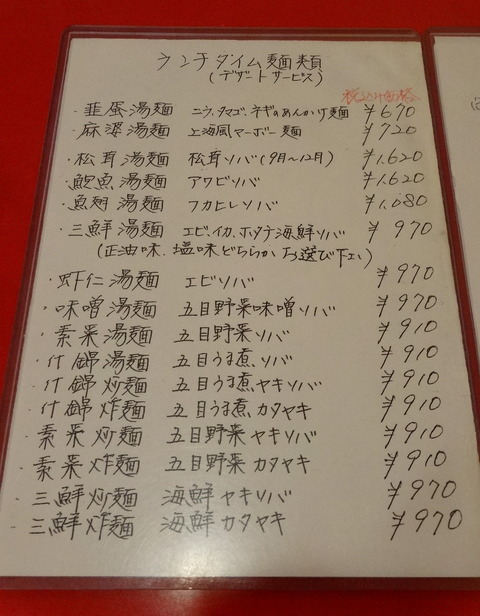 ランチタイム麺類
(デザートサービス)
税込み価格
・韮蛋湯麺 ニラ、タマゴ、ネギのあんかけ麺 ¥670
・麻婆湯麺 上海風マーボー麺 ¥720
・松茸湯麺 松茸ソバ(9月〜12月) ¥1.620
・鮑魚湯麺 アワビソバ ¥1.620
・魚翅湯麺 フカヒレソバ ¥1.080
・三鮮湯麺 エビ、イカ、ホタテ海鮮ソバ ¥970
(正油味、塩味どちらかお選び下さい)
・虾仁湯麺 エビソバ ¥970
・味噌湯麺 五目野菜味噌ソバ ¥970
・素菜湯麺 五目野菜ソバ ¥910
・什錦湯麺 五目うま煮ソバ ¥910
・什錦炒麺 五目うま煮ヤキソバ ¥910
・什錦炸麺 五目うま煮カタヤキ ¥910
・素菜炒麺 五目野菜ヤキソバ ¥910
・素菜炸麺 五目野菜カタヤキ ¥910
・三鮮炒麺 海鮮ヤキソバ ¥970
・三鮮炸麺 海鮮カタヤキ ¥970